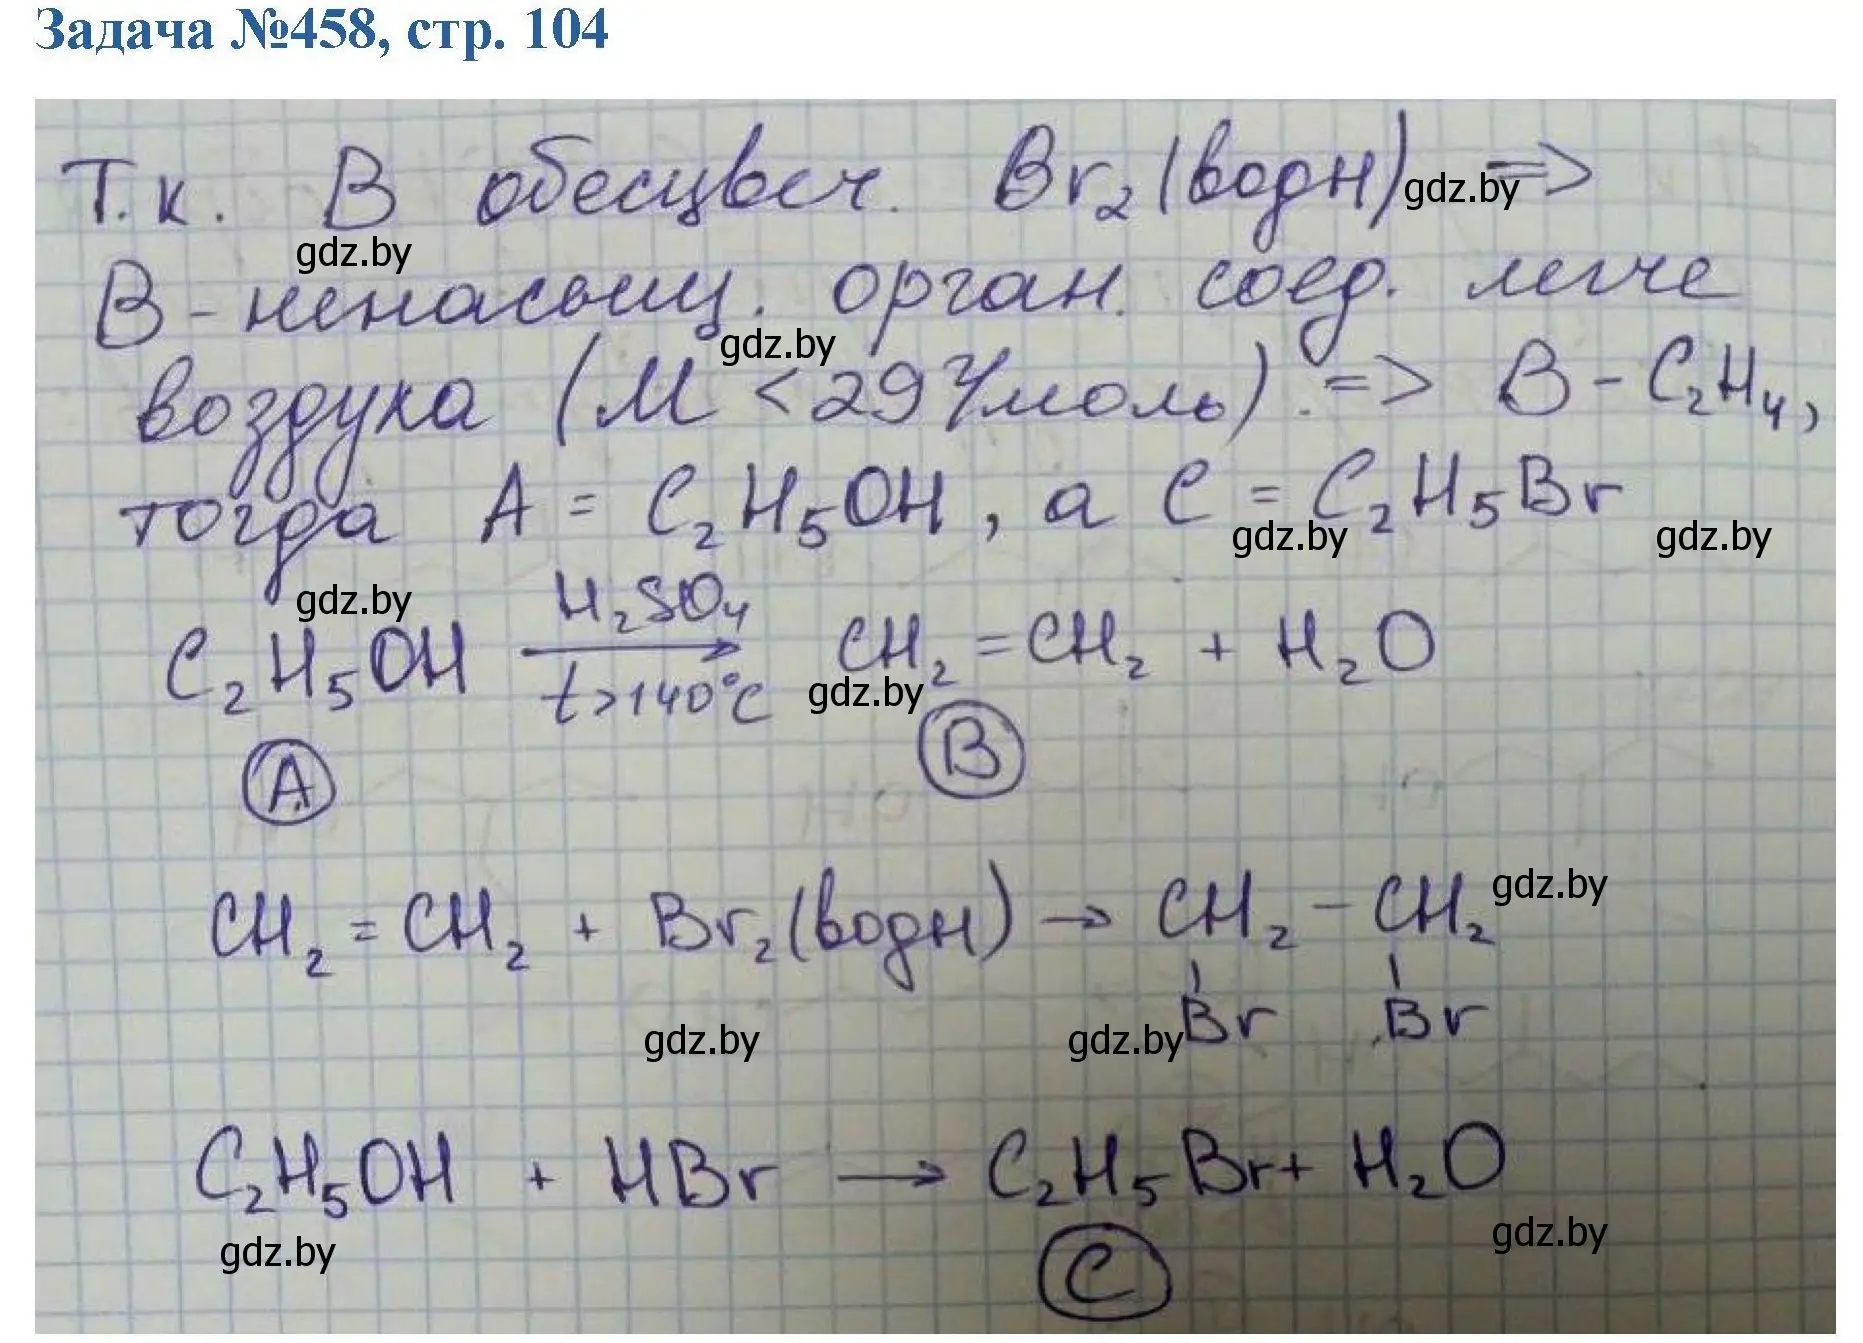 Задача №458, стр. 104
Т.к. В обесцвеч. Br₂(водн) =>
В - ненасыщ. орган. соед. легче
воздуха (М < 29 г/моль) => В - C₂H₄,
тогда А = C₂H₅OH, а С = C₂H₅Br
C₂H₅OH H₂SO₄ t>140°C → CH₂=CH₂ + H₂O
А В
CH₂=CH₂ + Br₂(водн) → CH₂-CH₂
Br Br
C₂H₅OH + HBr → C₂H₅Br + H₂O
С
gdz.by
gdz.by
gdz.by
gdz.by
gdz.by
gdz.by
gdz.by
gdz.by
gdz.by
gdz.by
gdz.by
gdz.by